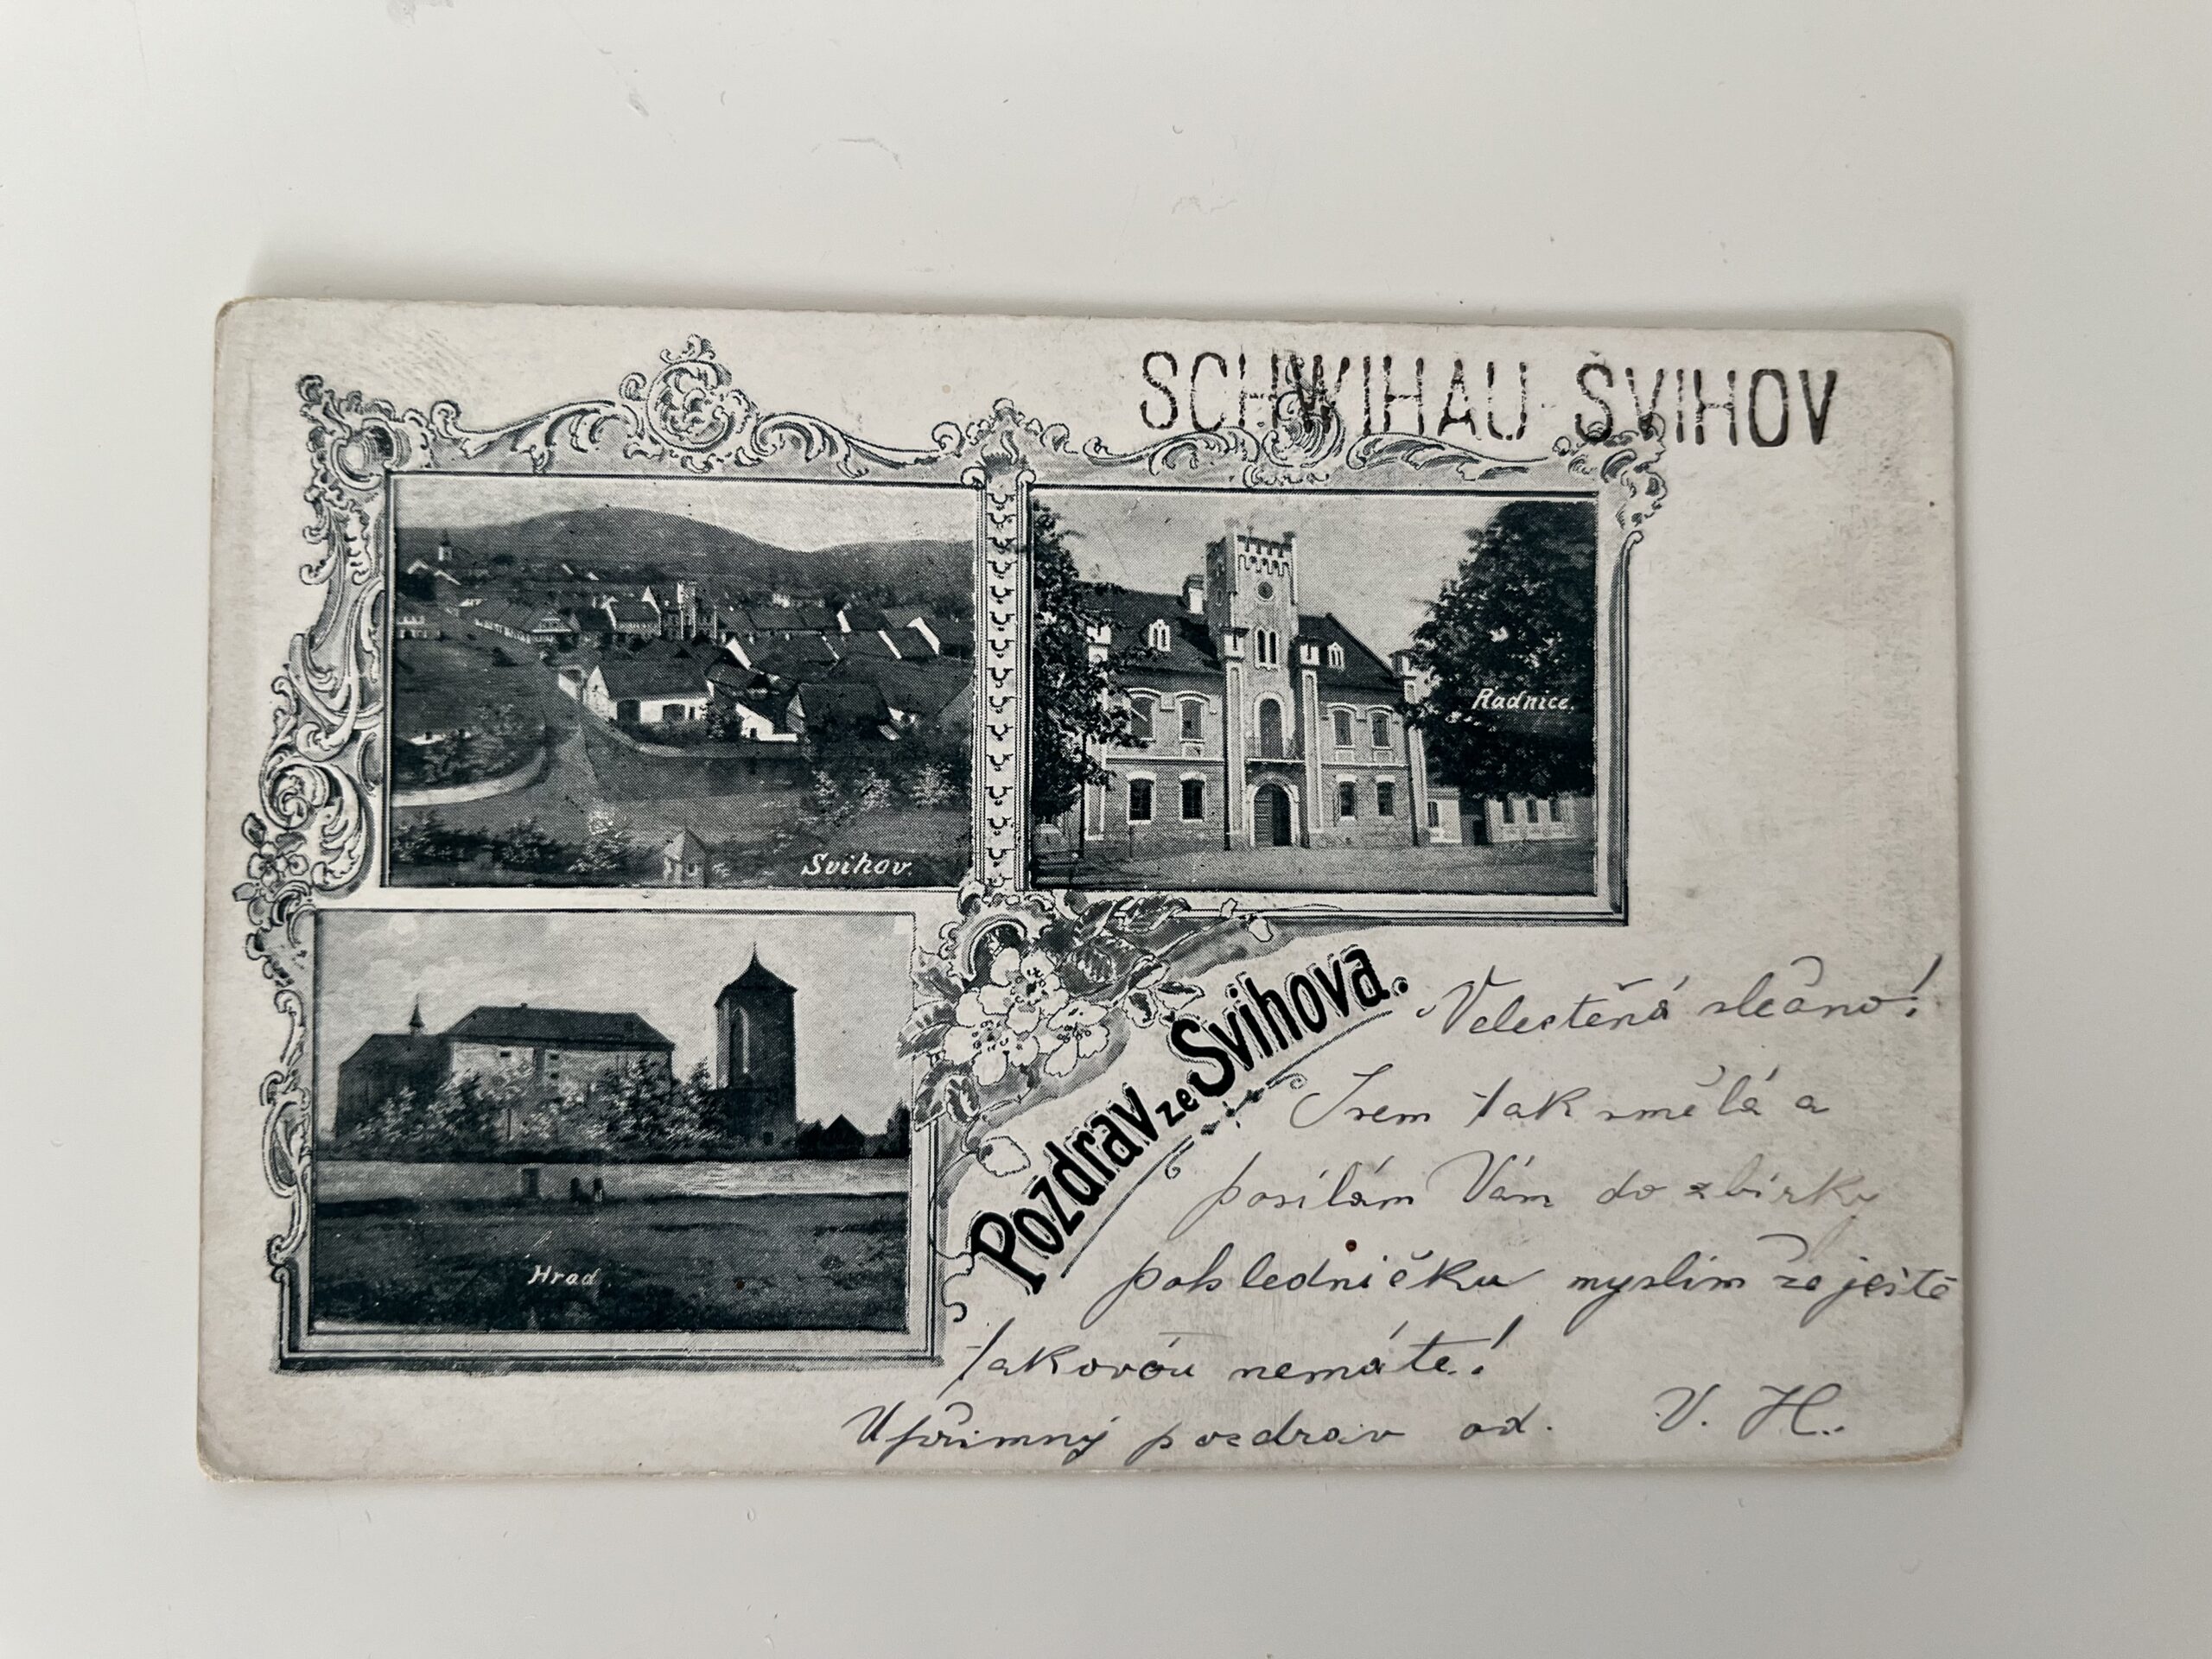 SCHWIHAU ŠVIHOV
Švihov.
Radnice.
Hrad
Pozdrav ze Švihova.
Velectěná slečno!
Jsem tak smělá a
posílám Vám do zbírky
pohledničku myslím že ještě
takovou nemáte!
Upřímný pozdrav od. V. H.